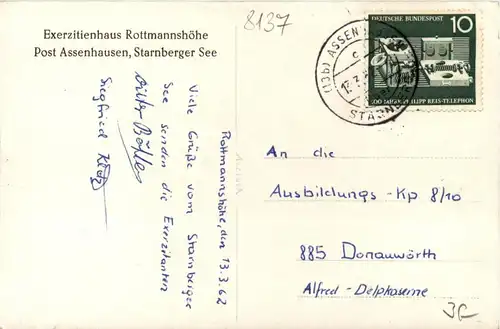 8137
Exerzitienhaus Rottmannshöhe
Post Assenhausen, Starnberger See
DEUTSCHE BUNDESPOST
10
100 JAHRE PHILIPP REIS-TELEPHON
(13b) ASSEN
c
STARNB
Rottmannshöhe, den 13.3.62
Viele Grüße vom Starnberger
See senden die Exerzitanten
Siegfried
An die
Ausbildungs-Kp 8/10
885 Donauwörth
Alfred-Delpkaserne